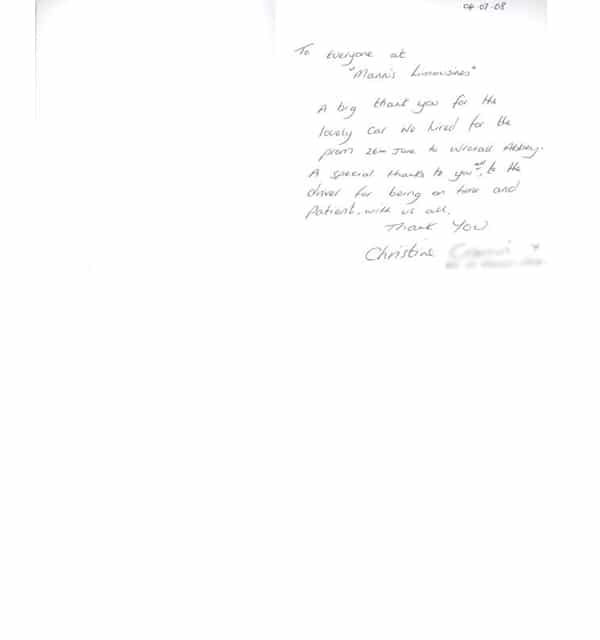 04-07-08
To Everyone at
"Mann's Limousines"
A big thank you for the
lovely Car we hired for the
prom 26th June to Wroxall Abbey.
A special thanks to you and, to the
driver for being on time and
Patient. with us all.
Thank You
Christine